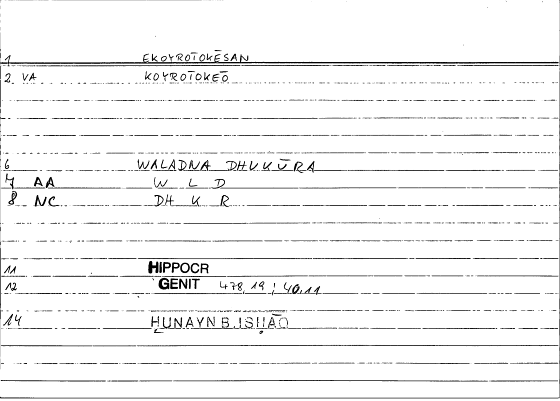 1 EKOYROTOKĒSAN
2. VA KOYROTOKEŌ
6 WALADNA DHUKŪRA
7 AA W L D
8 NC DH K R
11 HIPPOCR
12 GENIT 478,19 ; 40,11
14 ḤUNAYN B.ISḤĀQ